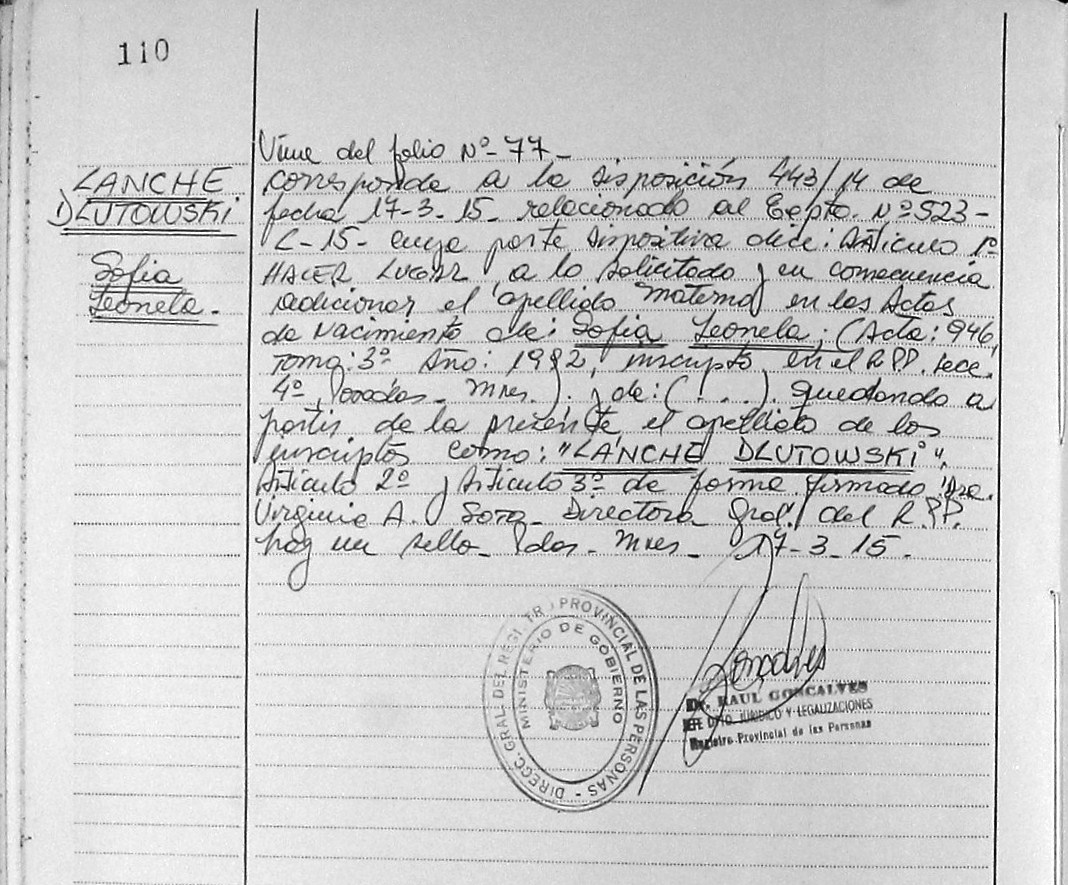 110
LANCHE
DLUTOWSKI
Sofia
Leonela.
Viene del folio Nº 77-
corresponde a la disposición 443/14 de
fecha 17-3-15- relacionado al Expte. Nº 523-
L-15- cuya parte dispositiva dice: Artículo 1º
HACER LUGAR a lo solicitado y en consecuencia
adicionar el apellido materno en las Actas
de Nacimiento de: Sofia Leonela; (Acta: 946,
Tomo: 3º Año: 1992, inscripto en el R.P.P. Secc.
4º, Posadas- Mnes.); y de: (....). Quedando a
partir de la presente el apellido de los
inscriptos como: "LANCHE DLUTOWSKI",
Artículo 2º y Artículo 3º de forma firmado Dra.
Virginia A. Directora Gral. del R.P.P.
hay un sello- Pdas- Mnes- 17-3-15.
DIRECC. GRAL. DEL REGISTRO PROVINCIAL DE LAS PERSONAS -
MINISTERIO DE GOBIERNO
Dr. RAUL GONCALVES
JEFE DPTO. JURIDICO Y LEGALIZACIONES
Registro Provincial de las Personas